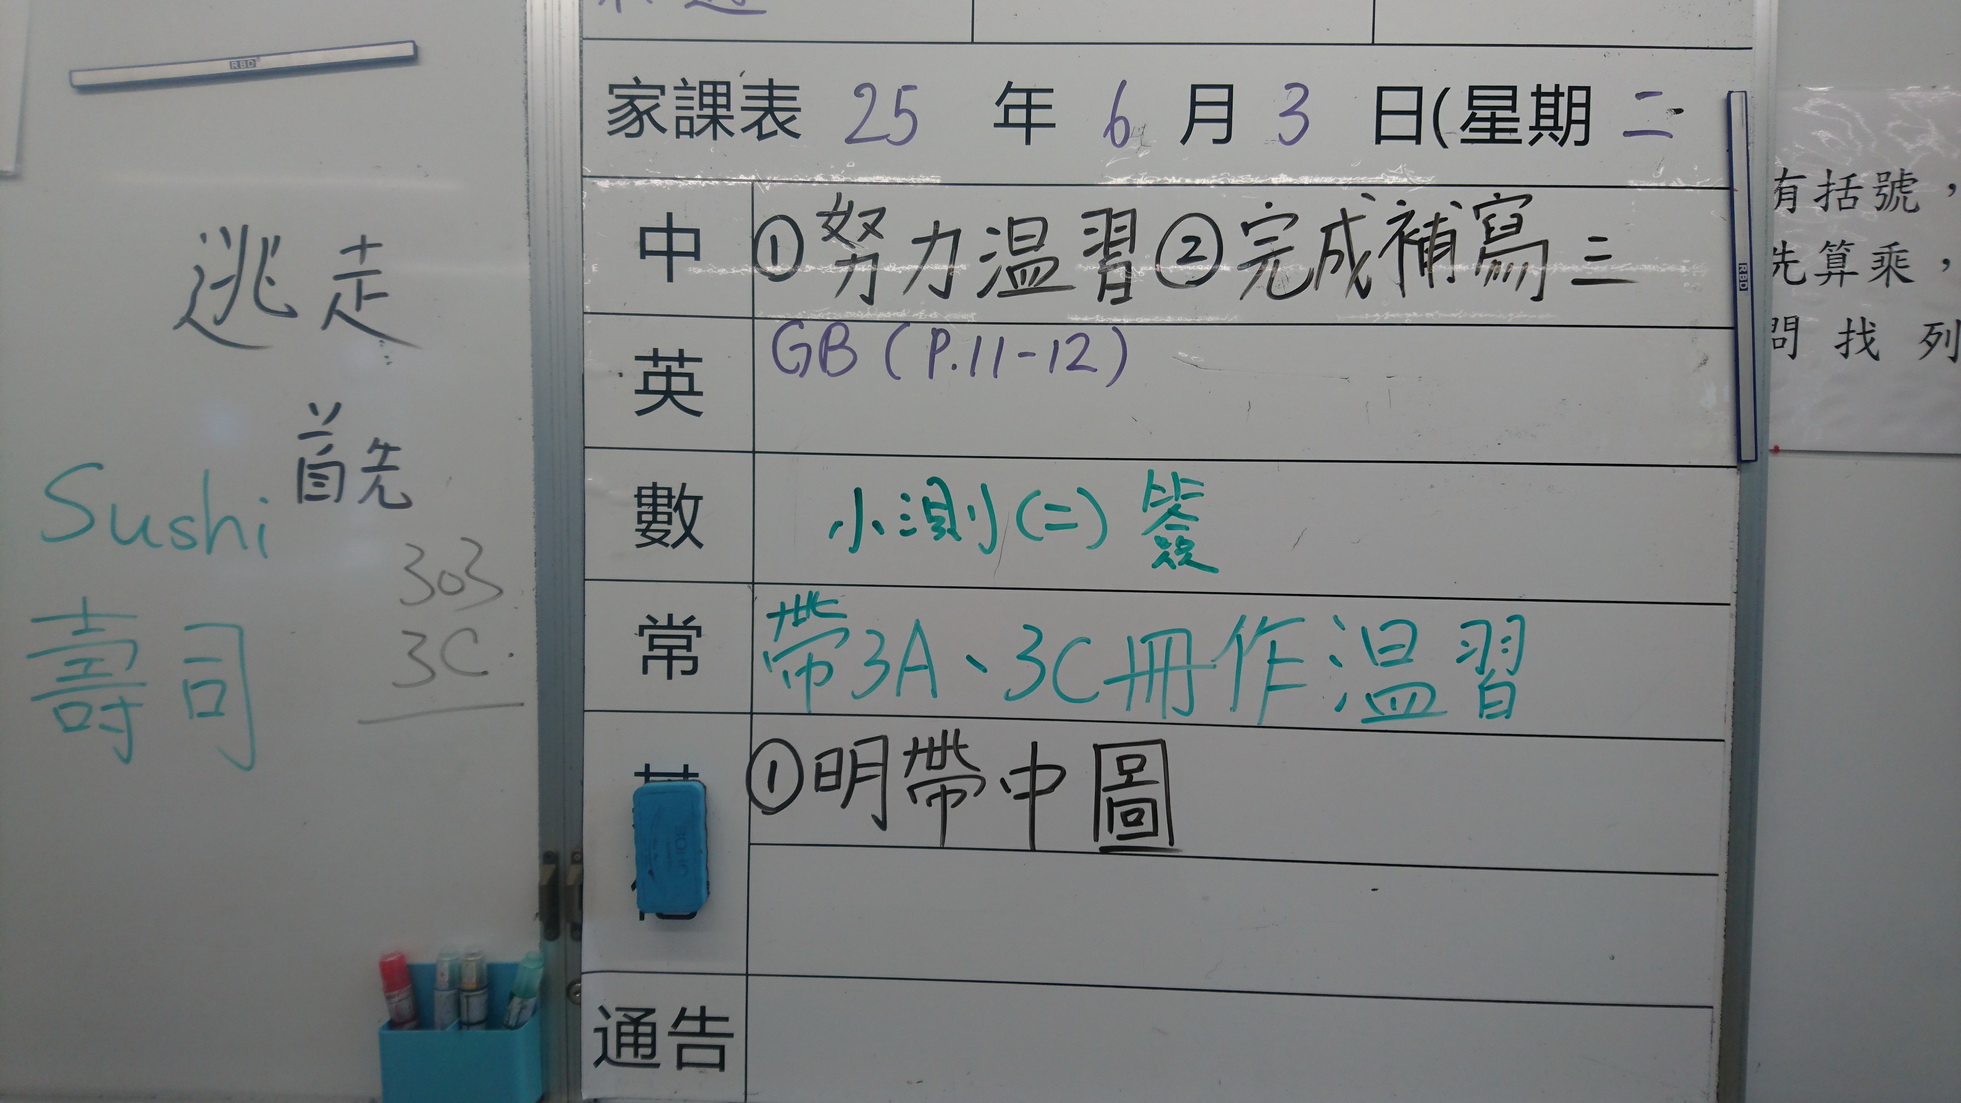 逃走
首先
Sushi
303
壽司
3C
家課表 25 年 6 月 3 日(星期 二
中 ①努力温習②完成補寫三
英 GB (P.11-12)
數 小測(二) 簽
常 帶3A、3C冊作溫習
①明帶中圖
通告
有括號，
先算乘，
問 找 列
RBD
RBD